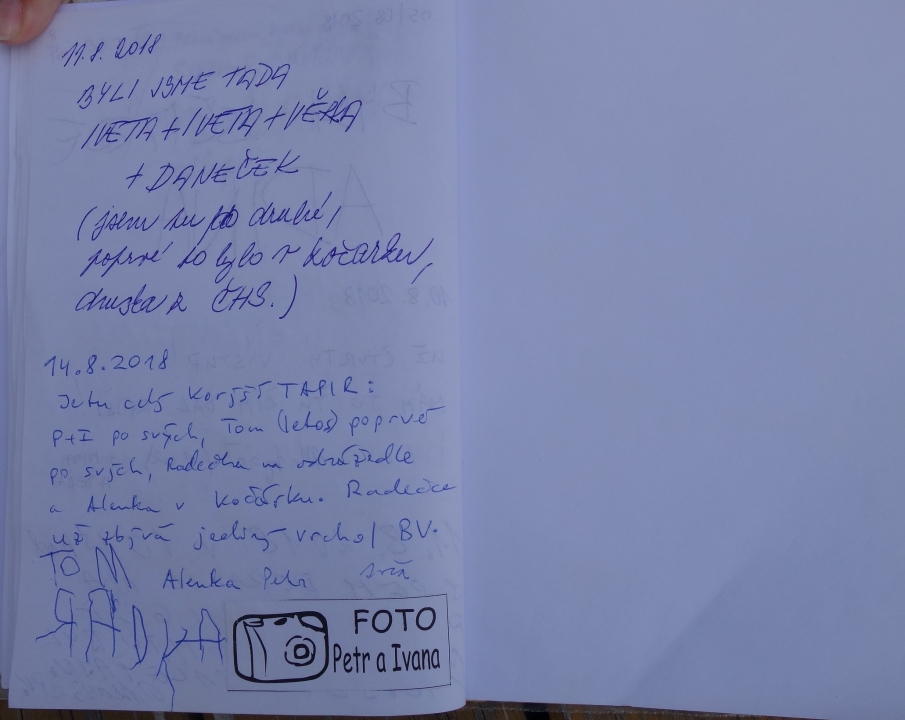 11.8.2018
BYLI JSME TADA
IVETA + IVETA + VĚRKA
+ DANEČEK
(jsem tu po druhé,
poprvé to bylo v kočárku,
z ČHS.)
14.8.2018
Jsem celý TAPIR:
P+I po svých, Tom (letos) poprvé
po svých, Radečka na odrážedle
a Alenka v kočárku. Radečce
už zbývá jediný vrchol BV.
TOM
Alenka Petr
RADKA
FOTO
Petr a Ivana